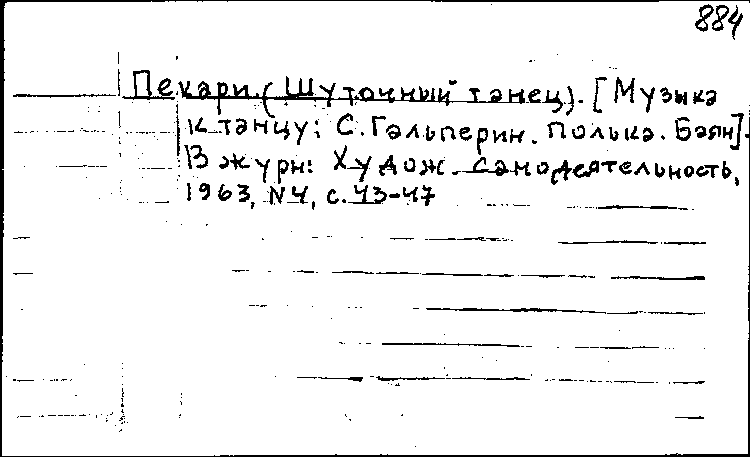 884
Пекари. (Шуточный танец). [Музыка
к танцу: С. Гальперин. Полька. Баян].
В журн: Худож. самодеятельность,
1963, N4, с. 43-47